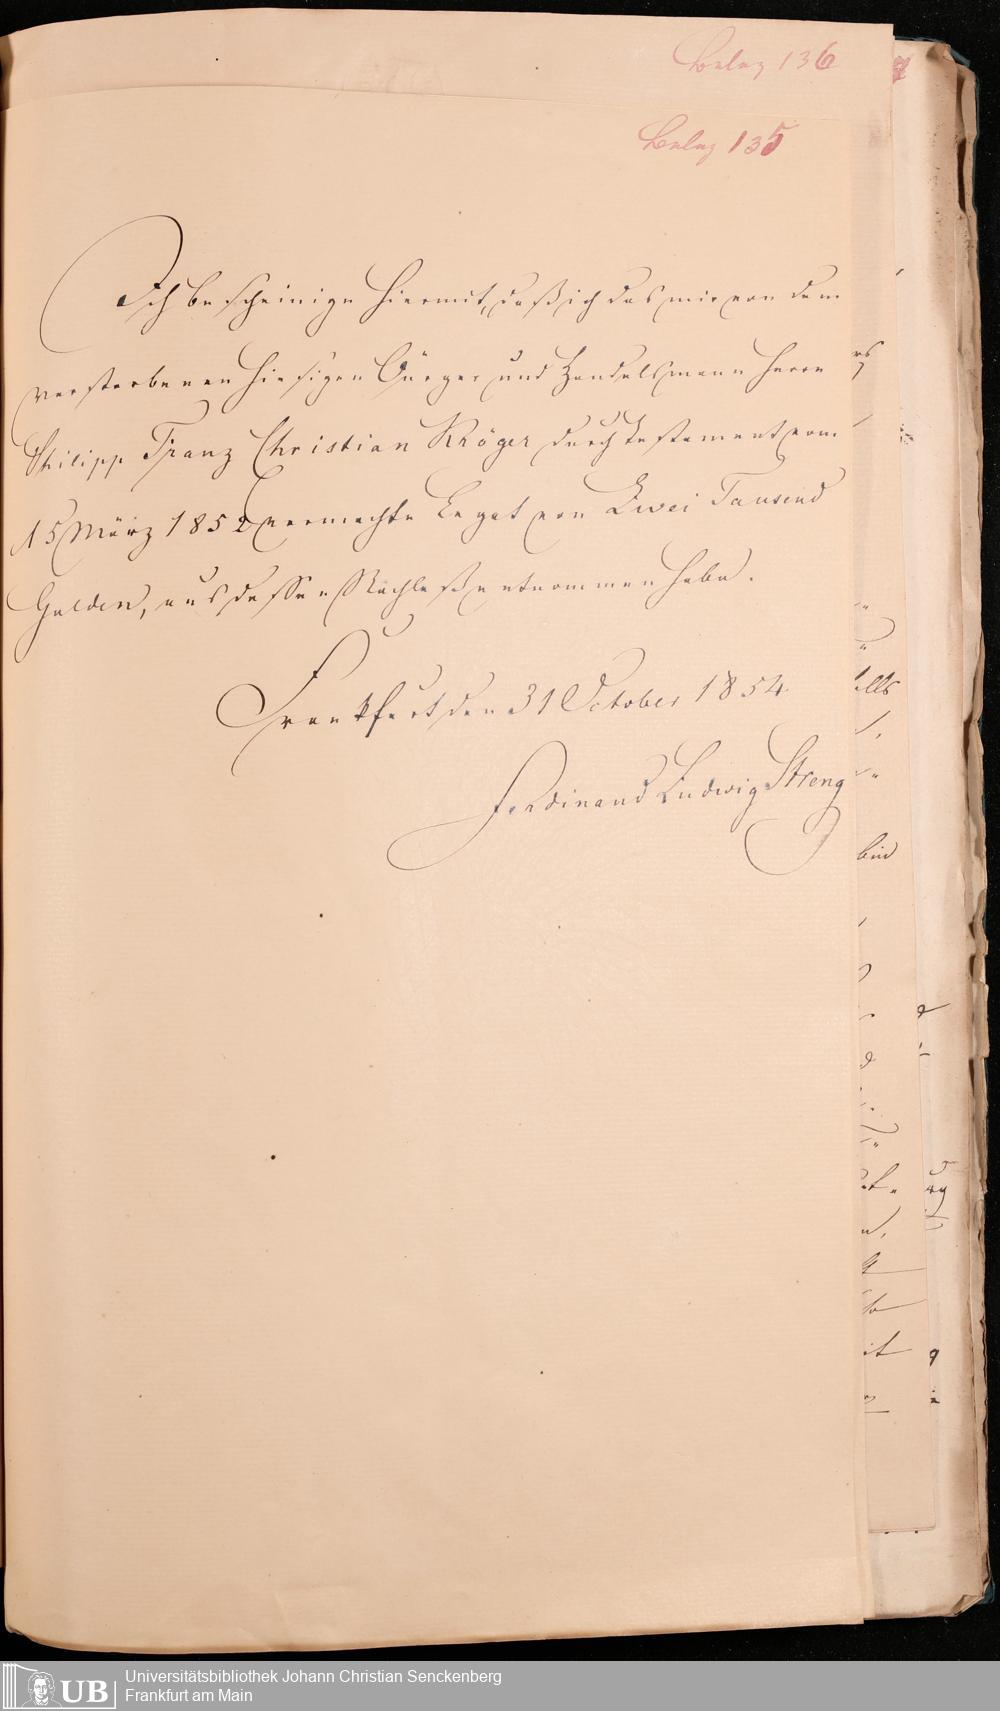 Beleg 136
Beleg 135
Ich bescheinige hiermit, daß ich das mir von dem
verstorbenen hiesigen Bürger und Handelsmann Herrn
Philipp Franz Christian Kröger durch Testament vom
15 März 1852 vermachte Legat von Zwei Tausend
Gulden, aus dessen Nachlaß entnommen habe.
Frankfurt den 31 October 1854
Ferdinand Ludwig Streng
UB
Universitätsbibliothek Johann Christian Senckenberg
Frankfurt am Main